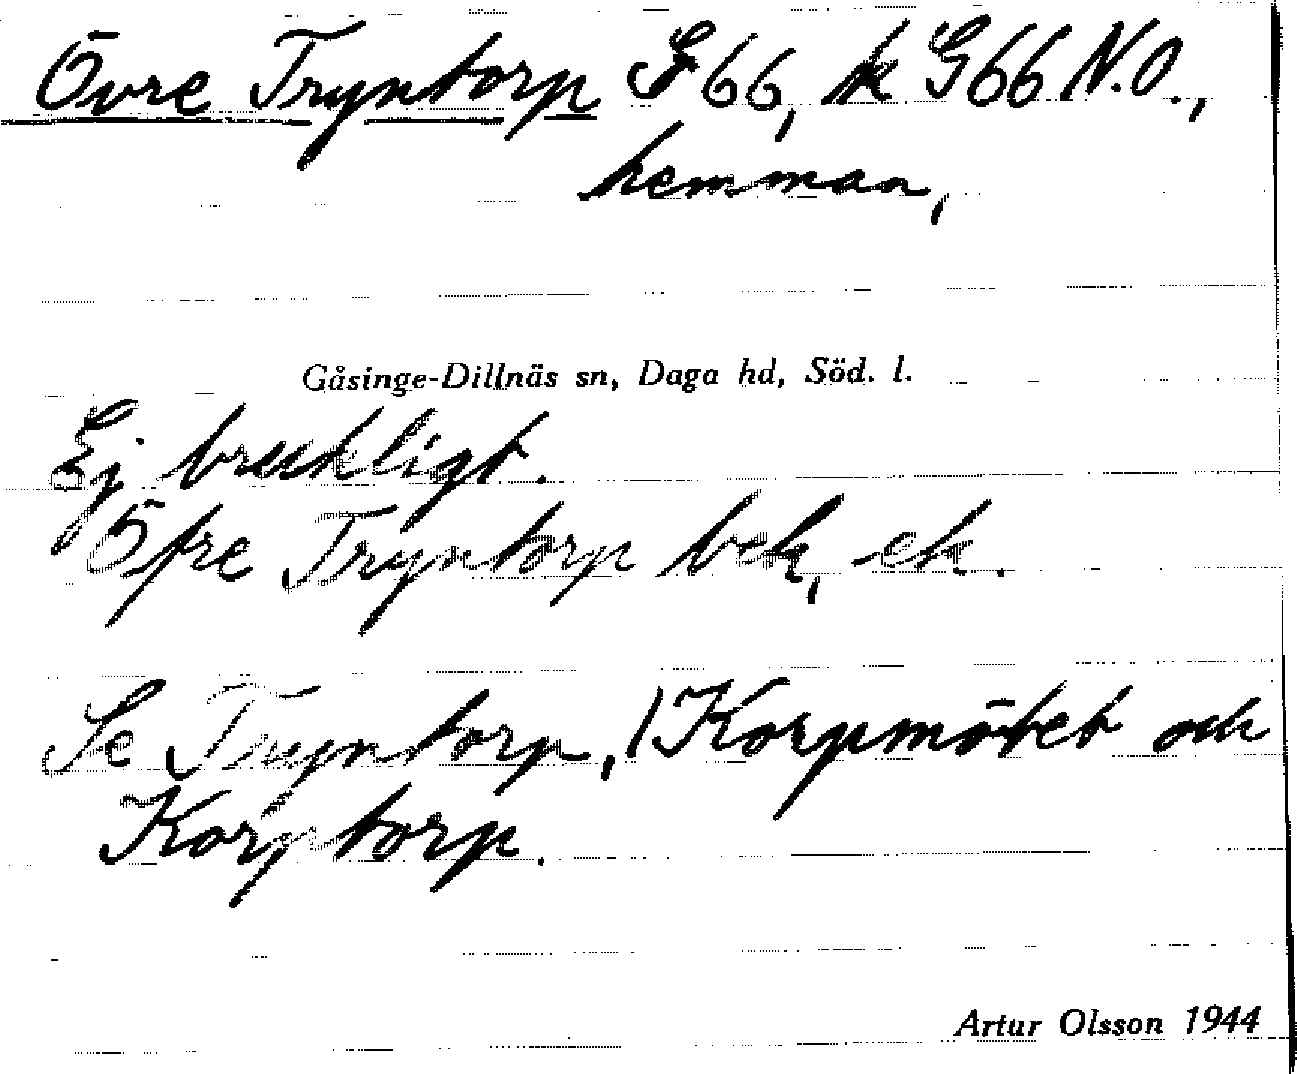 Övre Tryntorp G66, k G66 N.O.,
hemman,
Gåsinge-Dillnäs sn, Daga hd, Söd. l.
Ej brukligt.
Öfre Tryntorp bek, ek.
Se Tryntorp, Korpmötet och
Korptorp.
Artur Olsson 1944